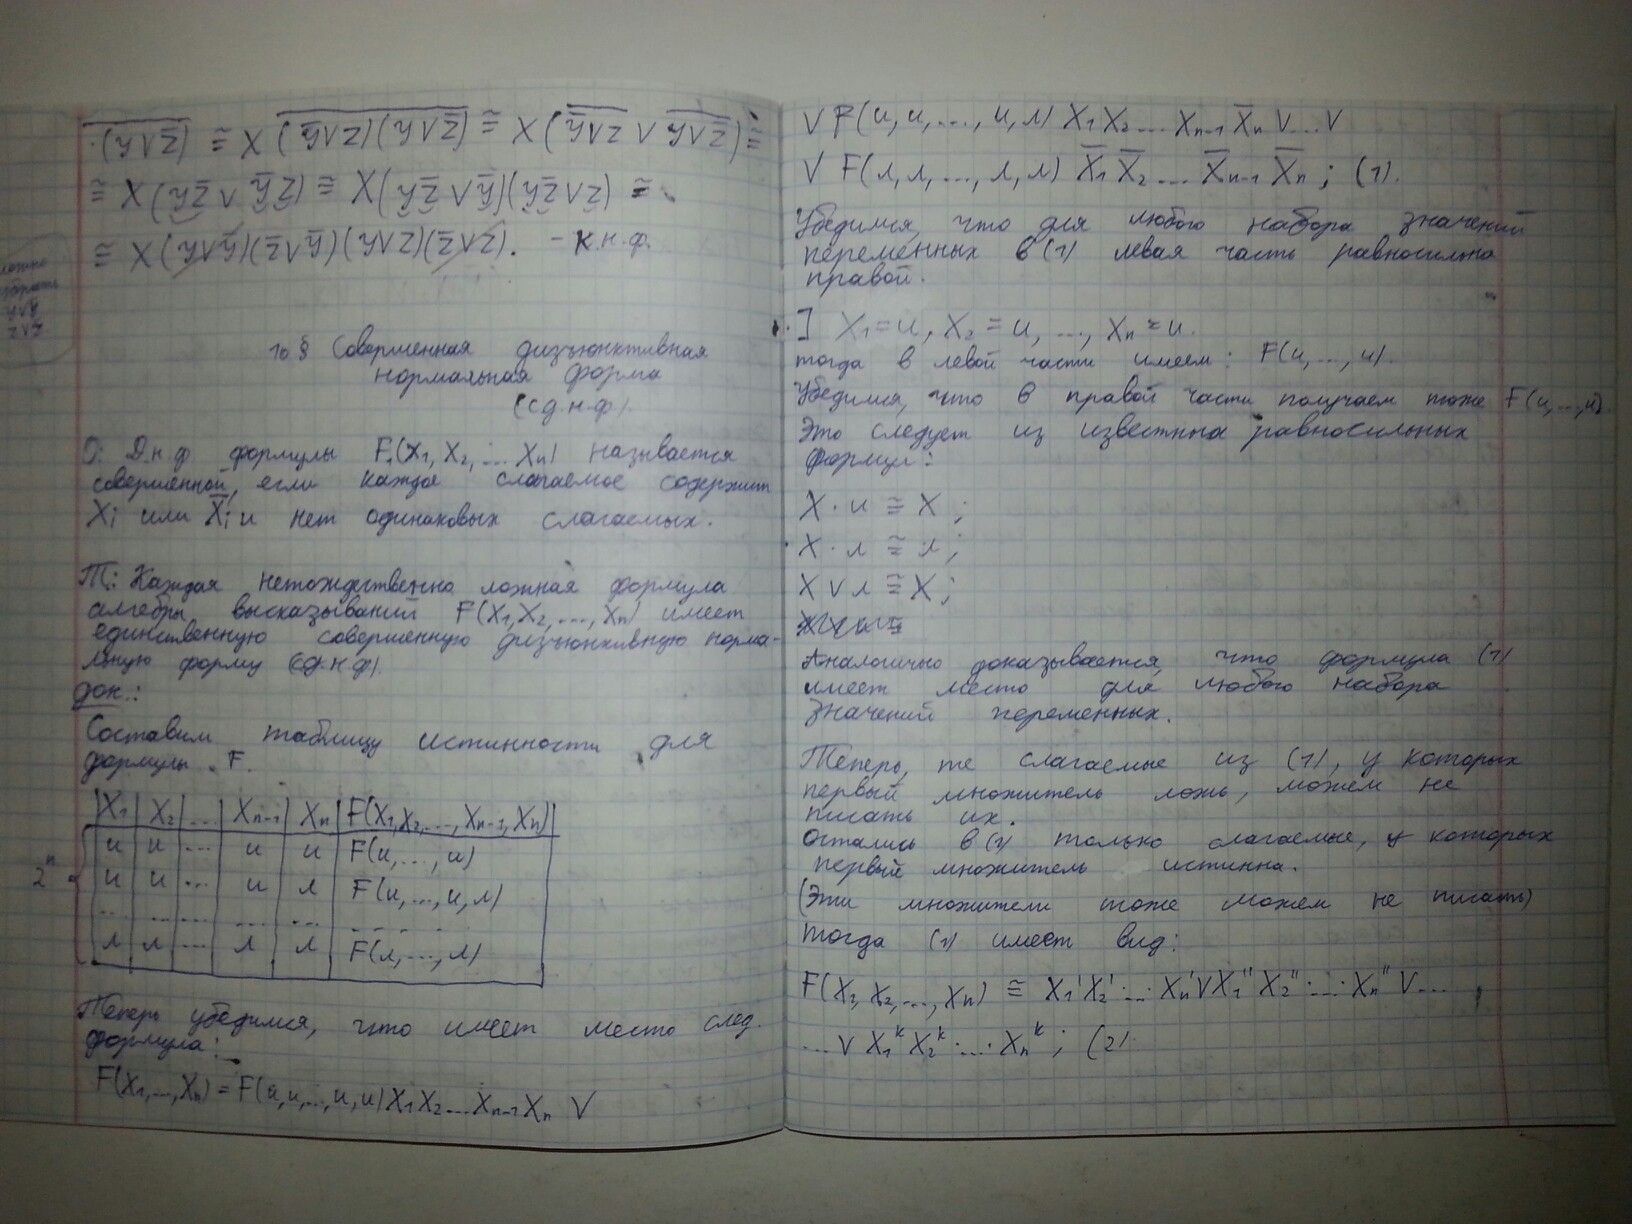 ·(y∨z̅) ≅ X (y̅∨z)(y∨z̅) ≅ X (y̅∨z ∨ y∨z̅) ≅
≅ X (yz̅ ∨ y̅z) ≅ X(yz̅ ∨ y̅)(yz̅ ∨ z) ≅
≅ X (y∨y̅)(z̅∨y̅)(y∨z)(z̅∨z). – к.н.ф.
10 § Совершенная дизъюнктивная
нормальная форма
(сд.н.ф).
О: Д.н.ф формулы F(X₁, X₂, ... Xn) называется
совершенной, если каждое слагаемое содержит
Xi или X̅i и нет одинаковых слагаемых.
Т: Каждая нетождественно ложная формула
алгебры высказываний F(X₁,X₂,...,Xn) имеет
единственную совершенную дизъюнктивную норма-
льную форму (сд.н.ф).
док.:
Составим таблицу истинности для
формулы F.
X₁ X₂ ... Xn-1 Xn F(X₁,X₂,...,Xn-1,Xn)
и и ... и и F(и,...,и)
2ⁿ и и ... и л F(и,...,и,л)
... ... ... ... ...
л л ... л л F(л,...,л)
Теперь убедимся, что имеет место след.
формула:
F(X₁,...,Xn) = F(и,и,...,и,и) X₁X₂...Xn-1Xn ∨
∨ F(и,и,...,и,л) X₁X₂...Xn-1X̅n ∨...∨
∨ F(л,л,...,л,л) X̅₁X̅₂...X̅n-1X̅n; (1).
Убедимся, что для любого набора значений
переменных в (1) левая часть равносильна
правой.
] X₁=и, X₂=и, ..., Xn=и.
тогда в левой части имеем: F(и,...,и).
Убедимся, что в правой части получаем тоже F(и,...,и).
Это следует из известных равносильных
формул:
X · и ≅ X;
X · л ≅ л;
X ∨ л ≅ X;
Аналогично доказывается, что формула (1)
имеет место для любого набора
значений переменных.
Теперь, те слагаемые из (1), у которых
первый множитель ложь, можем не
писать их.
Остались в (1) только слагаемые, у которых
первый множитель истинна.
(Эти множители тоже можем не писать)
тогда (1) имеет вид:
F(X₁,X₂,...,Xn) ≅ X₁'X₂'·...·Xn' ∨ X₁''X₂''·...·Xn'' ∨...
...∨ X₁ᵏX₂ᵏ·...·Xnᵏ; (2).